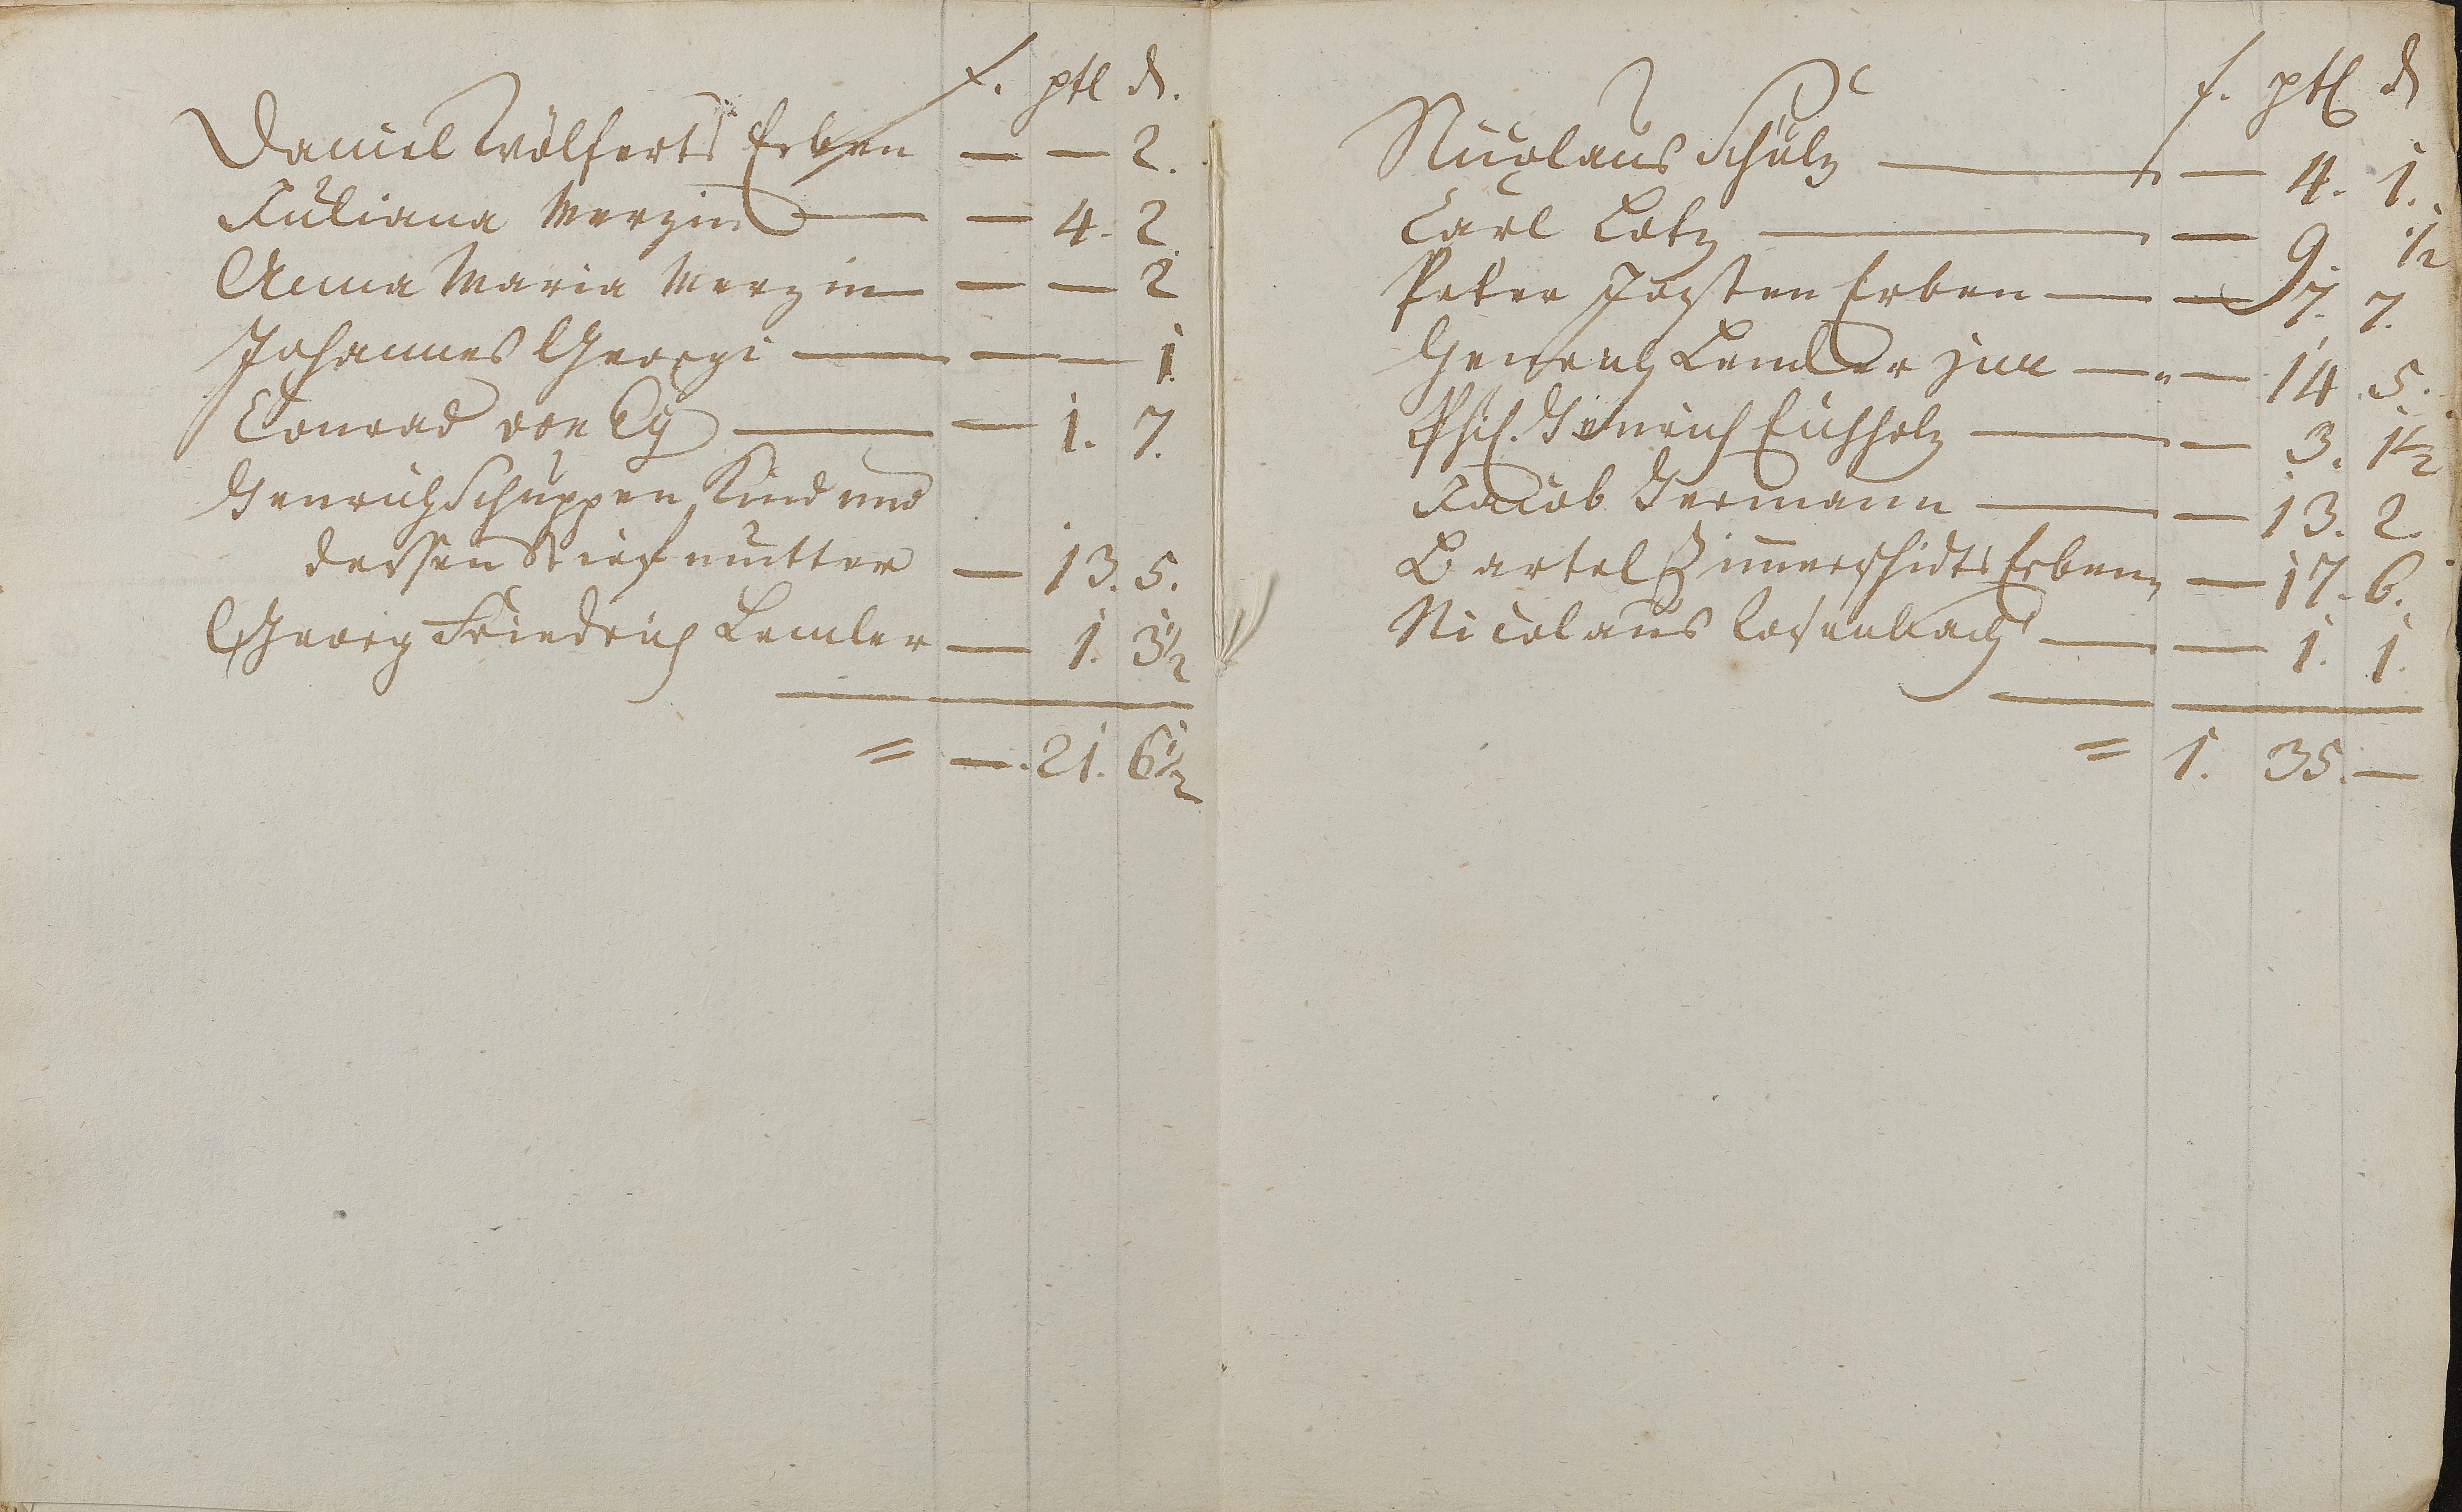 f. ptl d.
Daniel Wölferts Erben — — 2.
Juliana Merzin — — 4. 2.
Anna Maria Merzin — — 2
Johannes Georgi — — — 1.
Conrad von Ey — — 1. 7.
Henrich Schuppen Kind und
dessen Stiefmutter — 13. 5.
Georg Friedrich Lemler — 1. 3½
= — . 21. 6½
f. ptl d
Nicolaus Schulz — — 4. 1.
Carl Lotz — — 9. ½
Peter Josten Erben — — 7. 7.
Henrich Lemler jun — — 14 5.
Phil. Henrich Eichholz — — 3. 1½
Jacob Germann — — 13. 2.
Bartel Zimerschidts Erben — 17. 6.
Nicolaus Rosenbach — — 1. 1.
= 1. 35. —